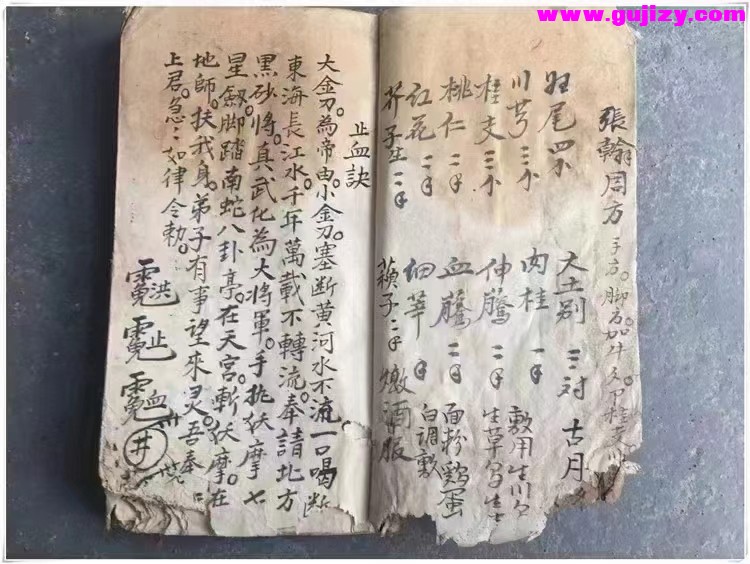 www.gujizy.com
張翰周方
归尾四个
川芎三个
桂支三个
桃仁二手
红花二手
芥子生二手
大土别三对
古月
肉桂一手
伸腾二手
血腾二手
细莘手
蘋子二手
敷用生川
生草
面粉鷄蛋
白调敷
燉酒服
止血訣
大金刀。為帝由。小金刀。塞断黄河水不流。一口喝断
東海長江水。千年萬載不轉流。奉請北方
黑砂将。真武化為大將軍。手挑妖摩七
星劔。脚踏南蛇八卦亭。在天宮。斬妖摩。在
地師。扶我身。弟子有事望來灵。吾奉
上君。急:如律令勅。
洪
止
血
井